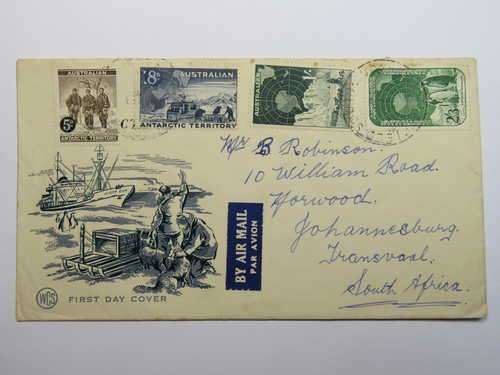 AUSTRALIAN
5D
ANTARCTIC TERRITORY
8D
AUSTRALIAN
ANTARCTIC TERRITORY
AUSTRALIAN
2/3
Mr B Robinson.
10 William Road.
Norwood.
Johannesburg.
Transvaal.
South Africa.
BY AIR MAIL
PAR AVION
WCS
FIRST DAY COVER